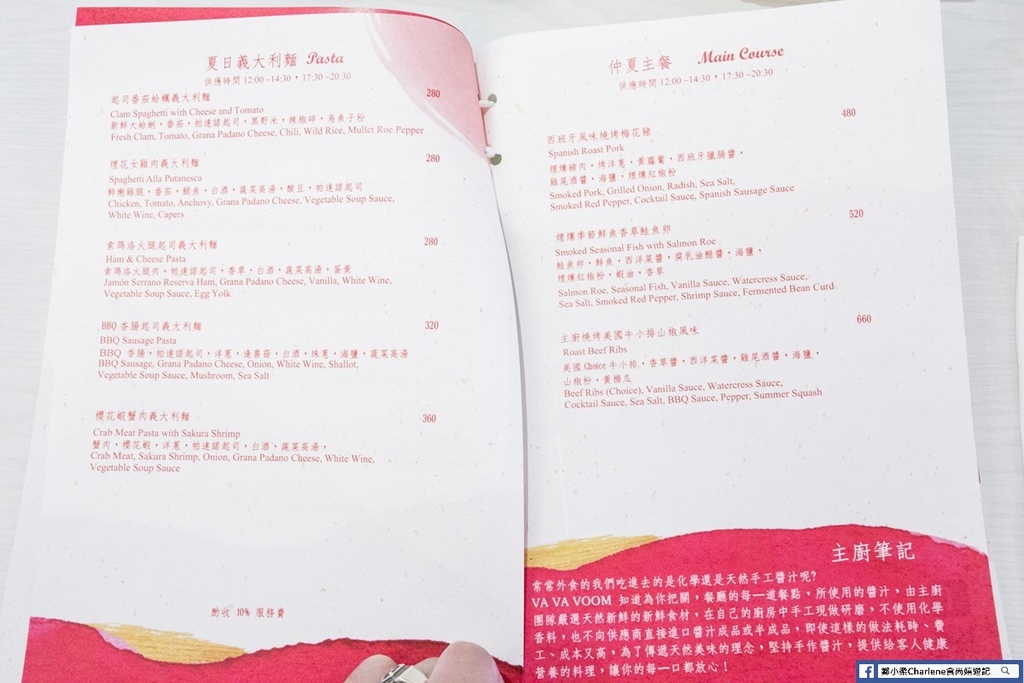 夏日義大利麵 Pasta
供應時間 12:00 ~14:30，17:30 ~20:30
起司番茄蛤蠣義大利麵 280
Clam Spaghetti with Cheese and Tomato
新鮮大蛤蜊，番茄，帕達諾起司，黑野米，辣椒碎，烏魚子粉
Fresh Clam, Tomato, Grana Padano Cheese, Chili, Wild Rice, Mullet Roe Pepper
煙花女雞肉義大利麵 280
Spaghetti Alla Putanesca
鮮嫩雞腿，番茄，鯷魚，白酒，蔬菜高湯，酸豆，帕達諾起司
Chicken, Tomato, Anchovy, Grana Padano Cheese, Vegetable Soup Sauce,
White Wine, Capers
索瑪洛火腿起司義大利麵 280
Ham & Cheese Pasta
索瑪洛火腿肉，帕達諾起司，香草，白酒，蔬菜高湯，蛋黃
Jamón Serrano Reserva Ham, Grana Padano Cheese, Vanilla, White Wine,
Vegetable Soup Sauce, Egg Yolk
BBQ 香腸起司義大利麵 320
BBQ Sausage Pasta
BBQ 香腸，帕達諾起司，洋蔥，蓬蘑菇，白酒，珠蔥，海鹽，蔬菜高湯
BBQ Sausage, Grana Padano Cheese, Onion, White Wine, Shallot,
Vegetable Soup Sauce, Mushroom, Sea Salt
櫻花蝦蟹肉義大利麵 360
Crab Meat Pasta with Sakura Shrimp
蟹肉，櫻花蝦，洋蔥，帕達諾起司，白酒，蔬菜高湯，
Crab Meat, Sakura Shrimp, Onion, Grana Padano Cheese, White Wine,
Vegetable Soup Sauce
酌收 10% 服務費
仲夏主餐 Main Course
供應時間 12:00 ~14:30，17:30 ~20:30
480
西班牙風味燒烤梅花豬
Spanish Roast Pork
煙燻豬肉，烤洋蔥，黃蘿蔔，西班牙臘腸醬，
雞尾酒醬，海鹽，煙燻紅椒粉
Smoked Pork, Grilled Onion, Radish, Sea Salt,
Smoked Red Pepper, Cocktail Sauce, Spanish Sausage Sauce
520
煙燻季節鮮魚香草鮭魚卵
Smoked Seasonal Fish with Salmon Roe
鮭魚卵，鮮魚，西洋菜醬，腐乳油醋醬，海鹽，
煙燻紅椒粉，蝦油，香草
Salmon Roe, Seasonal Fish, Vanilla Sauce, Watercress Sauce,
Sea Salt, Smoked Red Pepper, Shrimp Sauce, Fermented Bean Curd
660
主廚燒烤美國牛小排山椒風味
Roast Beef Ribs
美國 Choice 牛小排，香草醬，西洋菜醬，雞尾酒醬，海鹽，
山椒粉，黃櫛瓜
Beef Ribs (Choice), Vanilla Sauce, Watercress Sauce,
Cocktail Sauce, Sea Salt, BBQ Sauce, Pepper, Summer Squash
主廚筆記
常常外食的我們吃進去的是化學還是天然手工醬汁呢?
VA VA VOOM 知道為你把關，餐廳的每一道餐點，所使用的醬汁，由主廚
團隊嚴選天然新鮮的新鮮食材，在自己的廚房中手工現做研磨，不使用化學
香料，也不向供應商直接進口醬汁成品或半成品，即使這樣的做法耗時、費
工、成本又高，為了傳遞天然美味的理念，堅持手作醬汁，提供給客人健康
營養的料理，讓你的每一口都放心！
鄭小柔Charlene食尚娛遊記